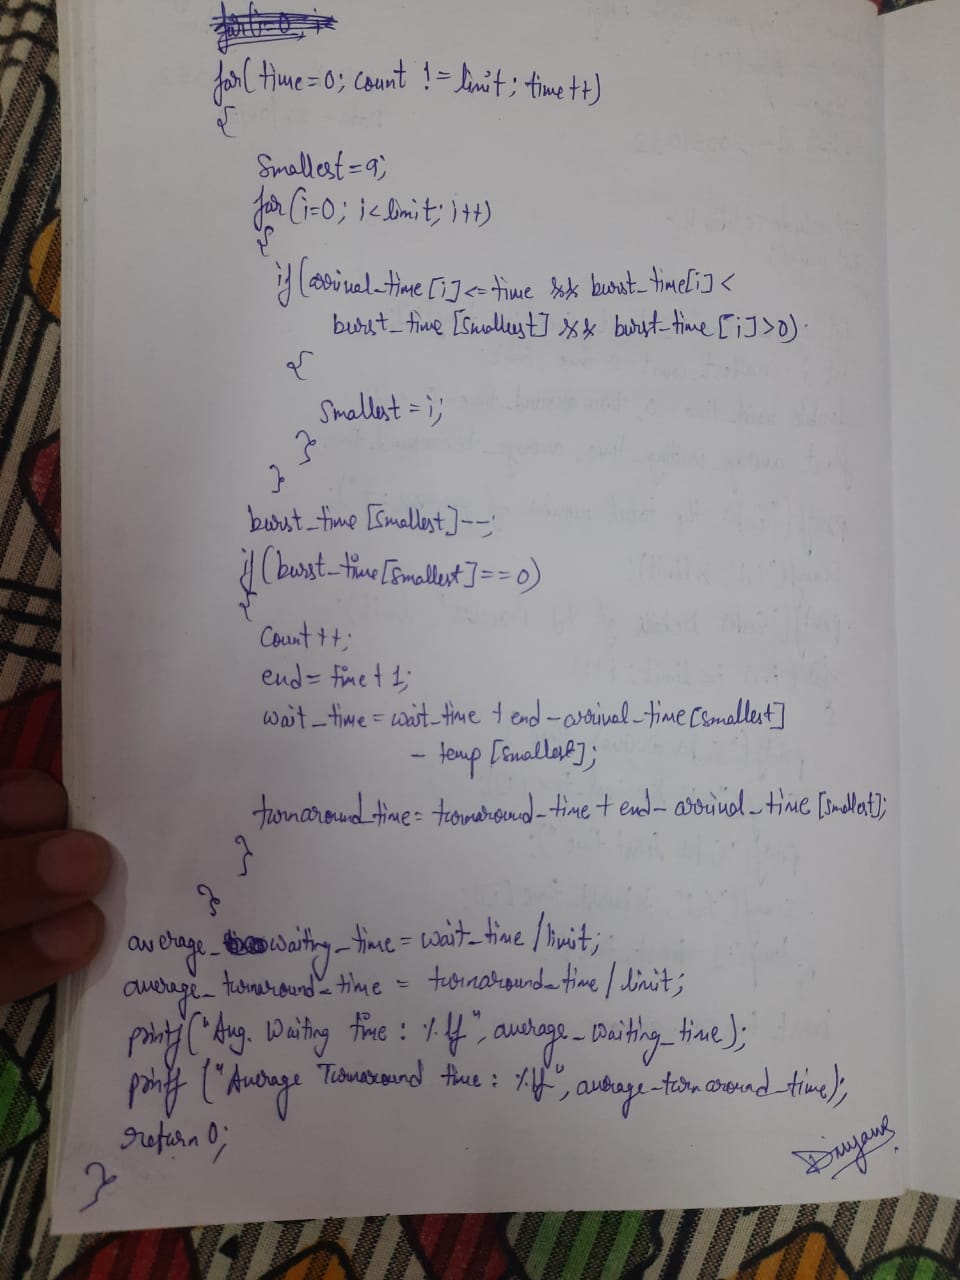 for(time=0; count != limit; time++)
{
smallest=9;
for(i=0; i<limit; i++)
{
if(arrival_time[i]<=time && burst_time[i]<
burst_time[smallest] && burst_time[i]>0)
{
smallest=i;
}
}
burst_time[smallest]--;
if(burst_time[smallest]==0)
{
count++;
end=time+1;
wait_time=wait_time+end-arrival_time[smallest]
- temp[smallest];
turnaround_time=turnaround_time+end-arrival_time[smallest];
}
}
average_waiting_time=wait_time/limit;
average_turnaround_time = turnaround_time/limit;
printf("Avg. Waiting time: %lf", average_waiting_time);
printf("Average Turnaround time: %lf", average_turnaround_time);
return 0;
}